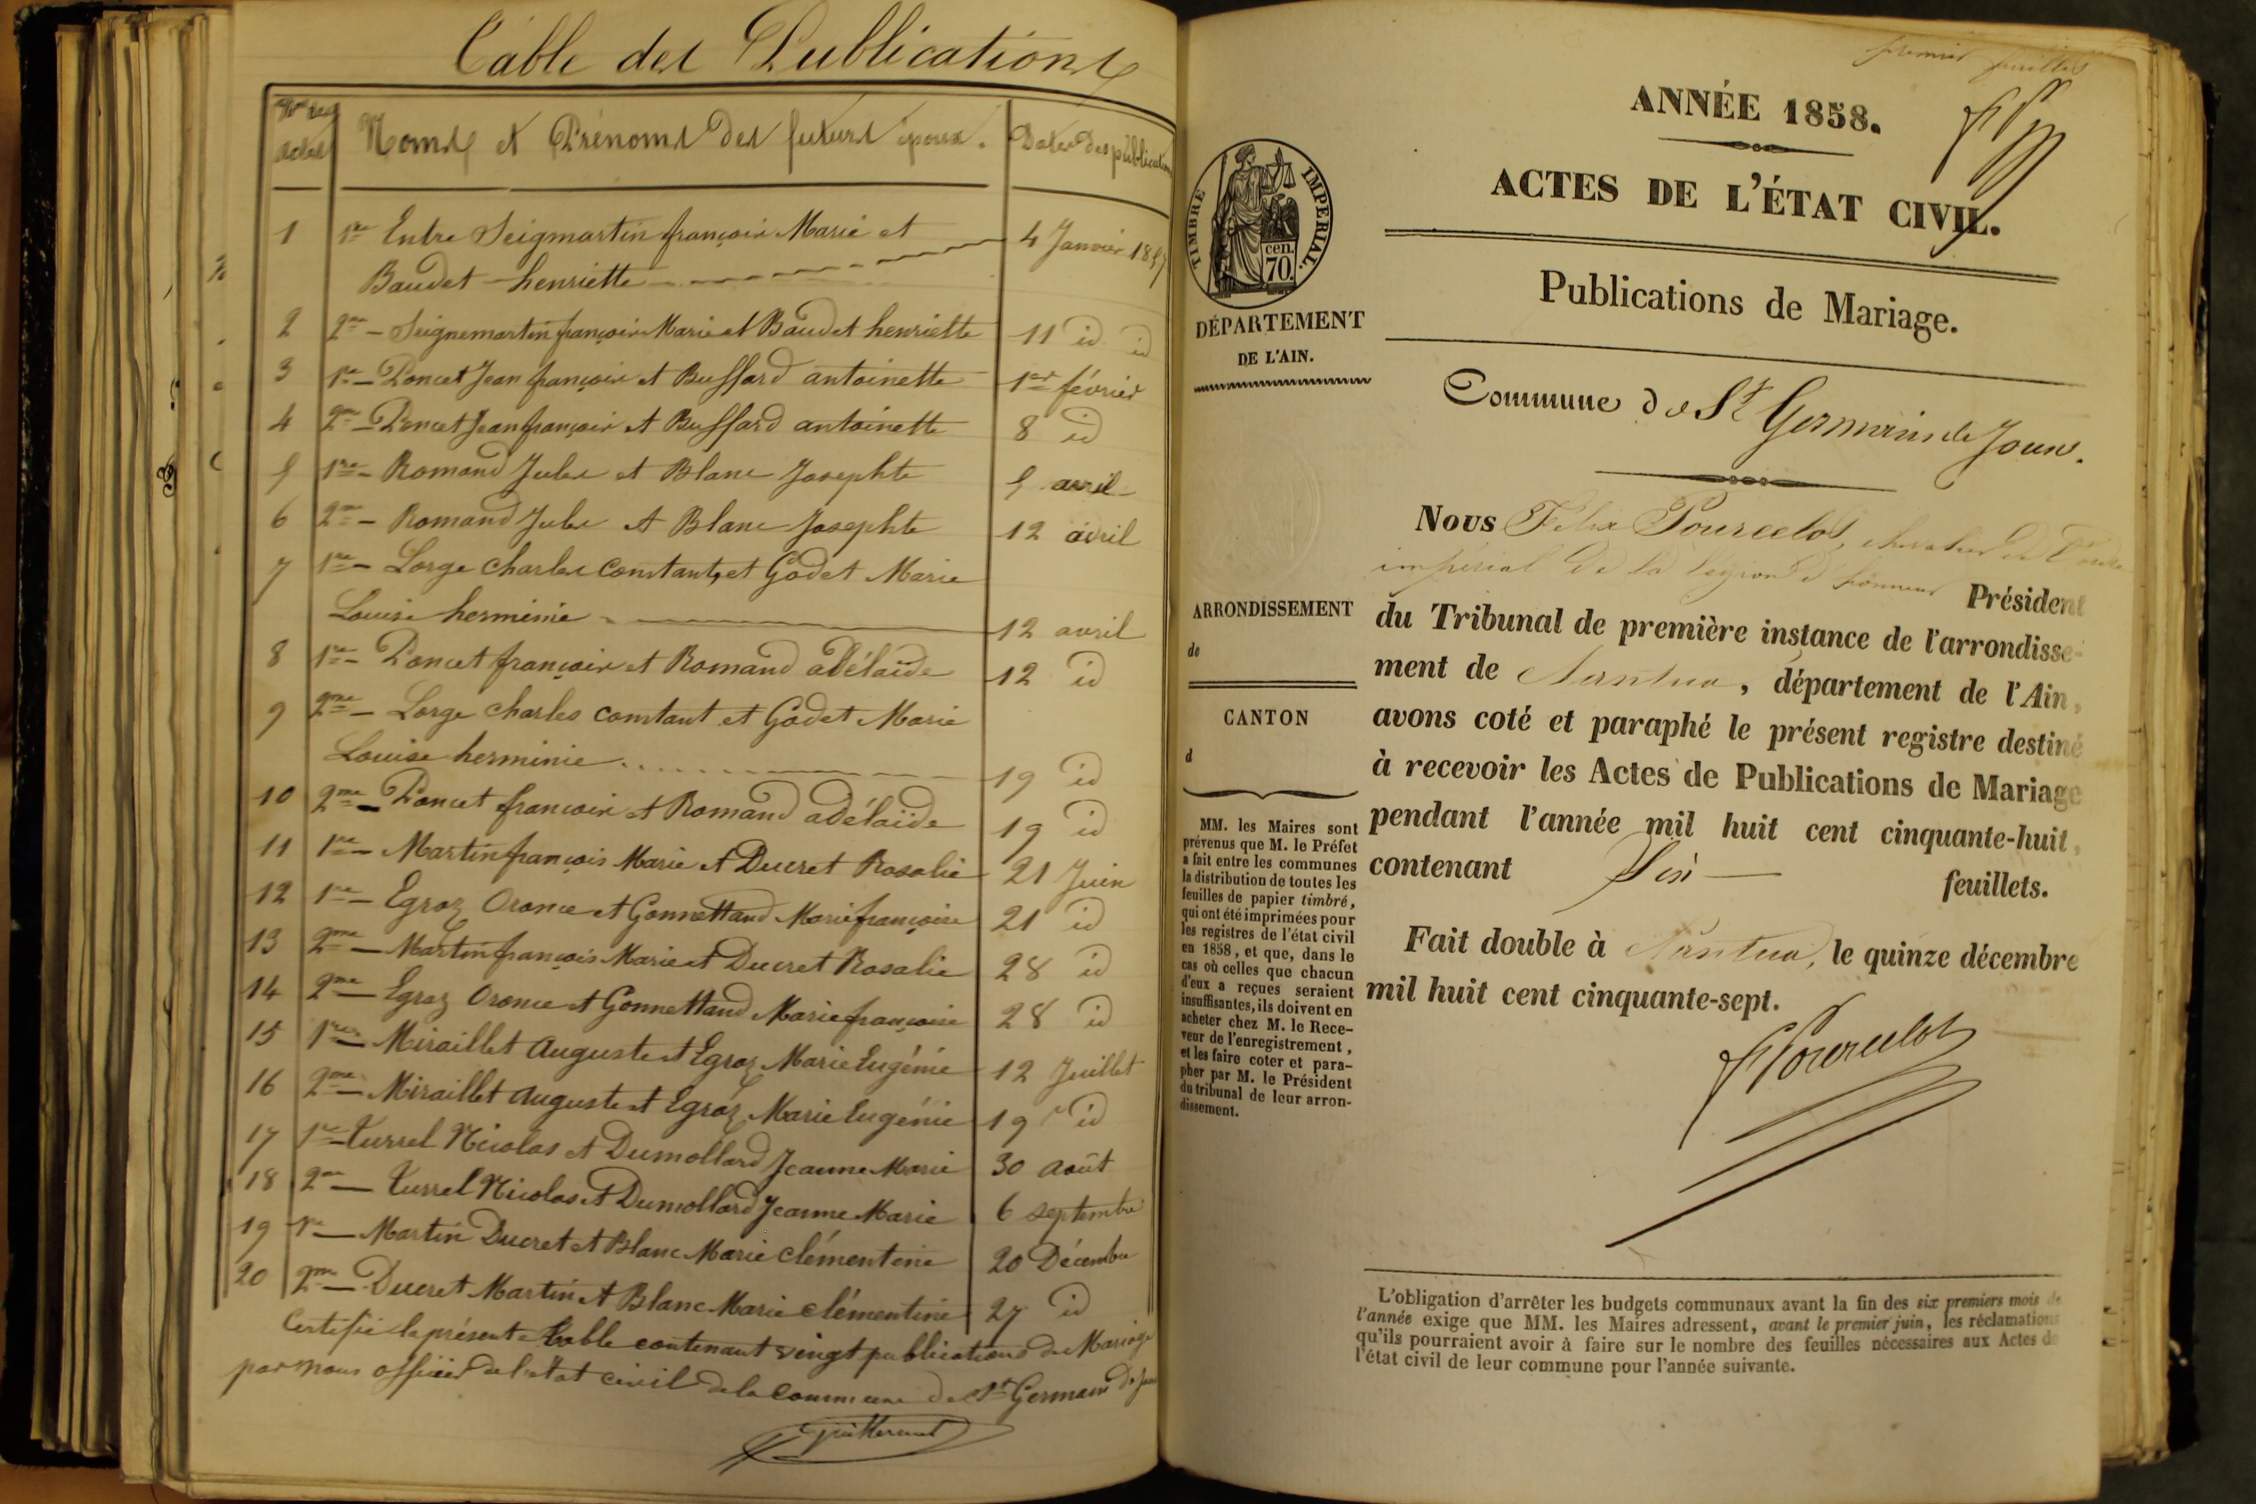 Table des Publications
Nos des actes
Noms et Prénoms des futurs époux.
Dates des publications
1 1re Entre Seigmartin françois Marie et
Baudet henriette 4 Janvier 1857
2 2me Seignemartin françois Marie et Baudet henriette 11 id id
3 1re Poncet Jean françois et Buffard antoinette 1er février
4 2me Poncet Jean françois et Buffard antoinette 8 id
5 1re Romand Jules et Blanc Josephte 5 avril
6 2me Romand Jules et Blanc Josephte 12 avril
7 1re Lorge Charles Constant, et Godet Marie
Louise herminie 12 avril
8 1re Poncet françois et Romand adélaïde 12 id
9 2me Lorge Charles Constant et Godet Marie
Louise herminie 19 id
10 2me Poncet françois et Romand adélaïde 19 id
11 1re Martin françois Marie et Ducret Rosalie 21 Juin
12 1re Egraz Oronce et Gonnettand Marie françoise 21 id
13 2me Martin françois Marie et Ducret Rosalie 28 id
14 2me Egraz Oronce et Gonnettand Marie françoise 28 id
15 1re Miraillet Auguste et Egraz Marie Eugénie 12 Juillet
16 2me Miraillet Auguste et Egraz Marie Eugénie 19 id
17 1re Turrel Nicolas et Dumollard Jeanne Marie 30 août
18 2me Turrel Nicolas et Dumollard Jeanne Marie 6 septembre
19 1re Martin Ducret et Blanc Marie Clémentine 20 Décembre
20 2me Ducret Martin et Blanc Marie Clémentine 27 id
Certifié la présente table contenant vingt publications de Mariage
par nous officier de l'état civil de la commune de St Germain de Joux
premier feuillet
ANNÉE 1858.
ACTES DE L'ÉTAT CIVIL.
Publications de Mariage.
TIMBRE IMPÉRIAL.
cen.
70.
DÉPARTEMENT
DE L'AIN.
Commune de St Germain de Joux.
Nous Félix Pourcelot, chevalier de l'ordre
impérial de la légion d'honneur Président
du Tribunal de première instance de l'arrondisse-
ment de Nantua, département de l'Ain,
avons coté et paraphé le présent registre destiné
à recevoir les Actes de Publications de Mariage
pendant l'année mil huit cent cinquante-huit,
contenant Six feuillets.
Fait double à Nantua, le quinze décembre
mil huit cent cinquante-sept.
FPourcelot
ARRONDISSEMENT
de
CANTON
d
MM. les Maires sont
prévenus que M. le Préfet
a fait entre les communes
la distribution de toutes les
feuilles de papier timbré,
qui ont été imprimées pour
les registres de l'état civil
en 1858, et que, dans le
cas où celles que chacun
d'eux a reçues seraient
insuffisantes, ils doivent en
acheter chez M. le Rece-
veur de l'enregistrement,
et les faire coter et para-
pher par M. le Président
du tribunal de leur arron-
dissement.
L'obligation d'arrêter les budgets communaux avant la fin des six premiers mois de
l'année exige que MM. les Maires adressent, avant le premier juin, les réclamations
qu'ils pourraient avoir à faire sur le nombre des feuilles nécessaires aux Actes de
l'état civil de leur commune pour l'année suivante.